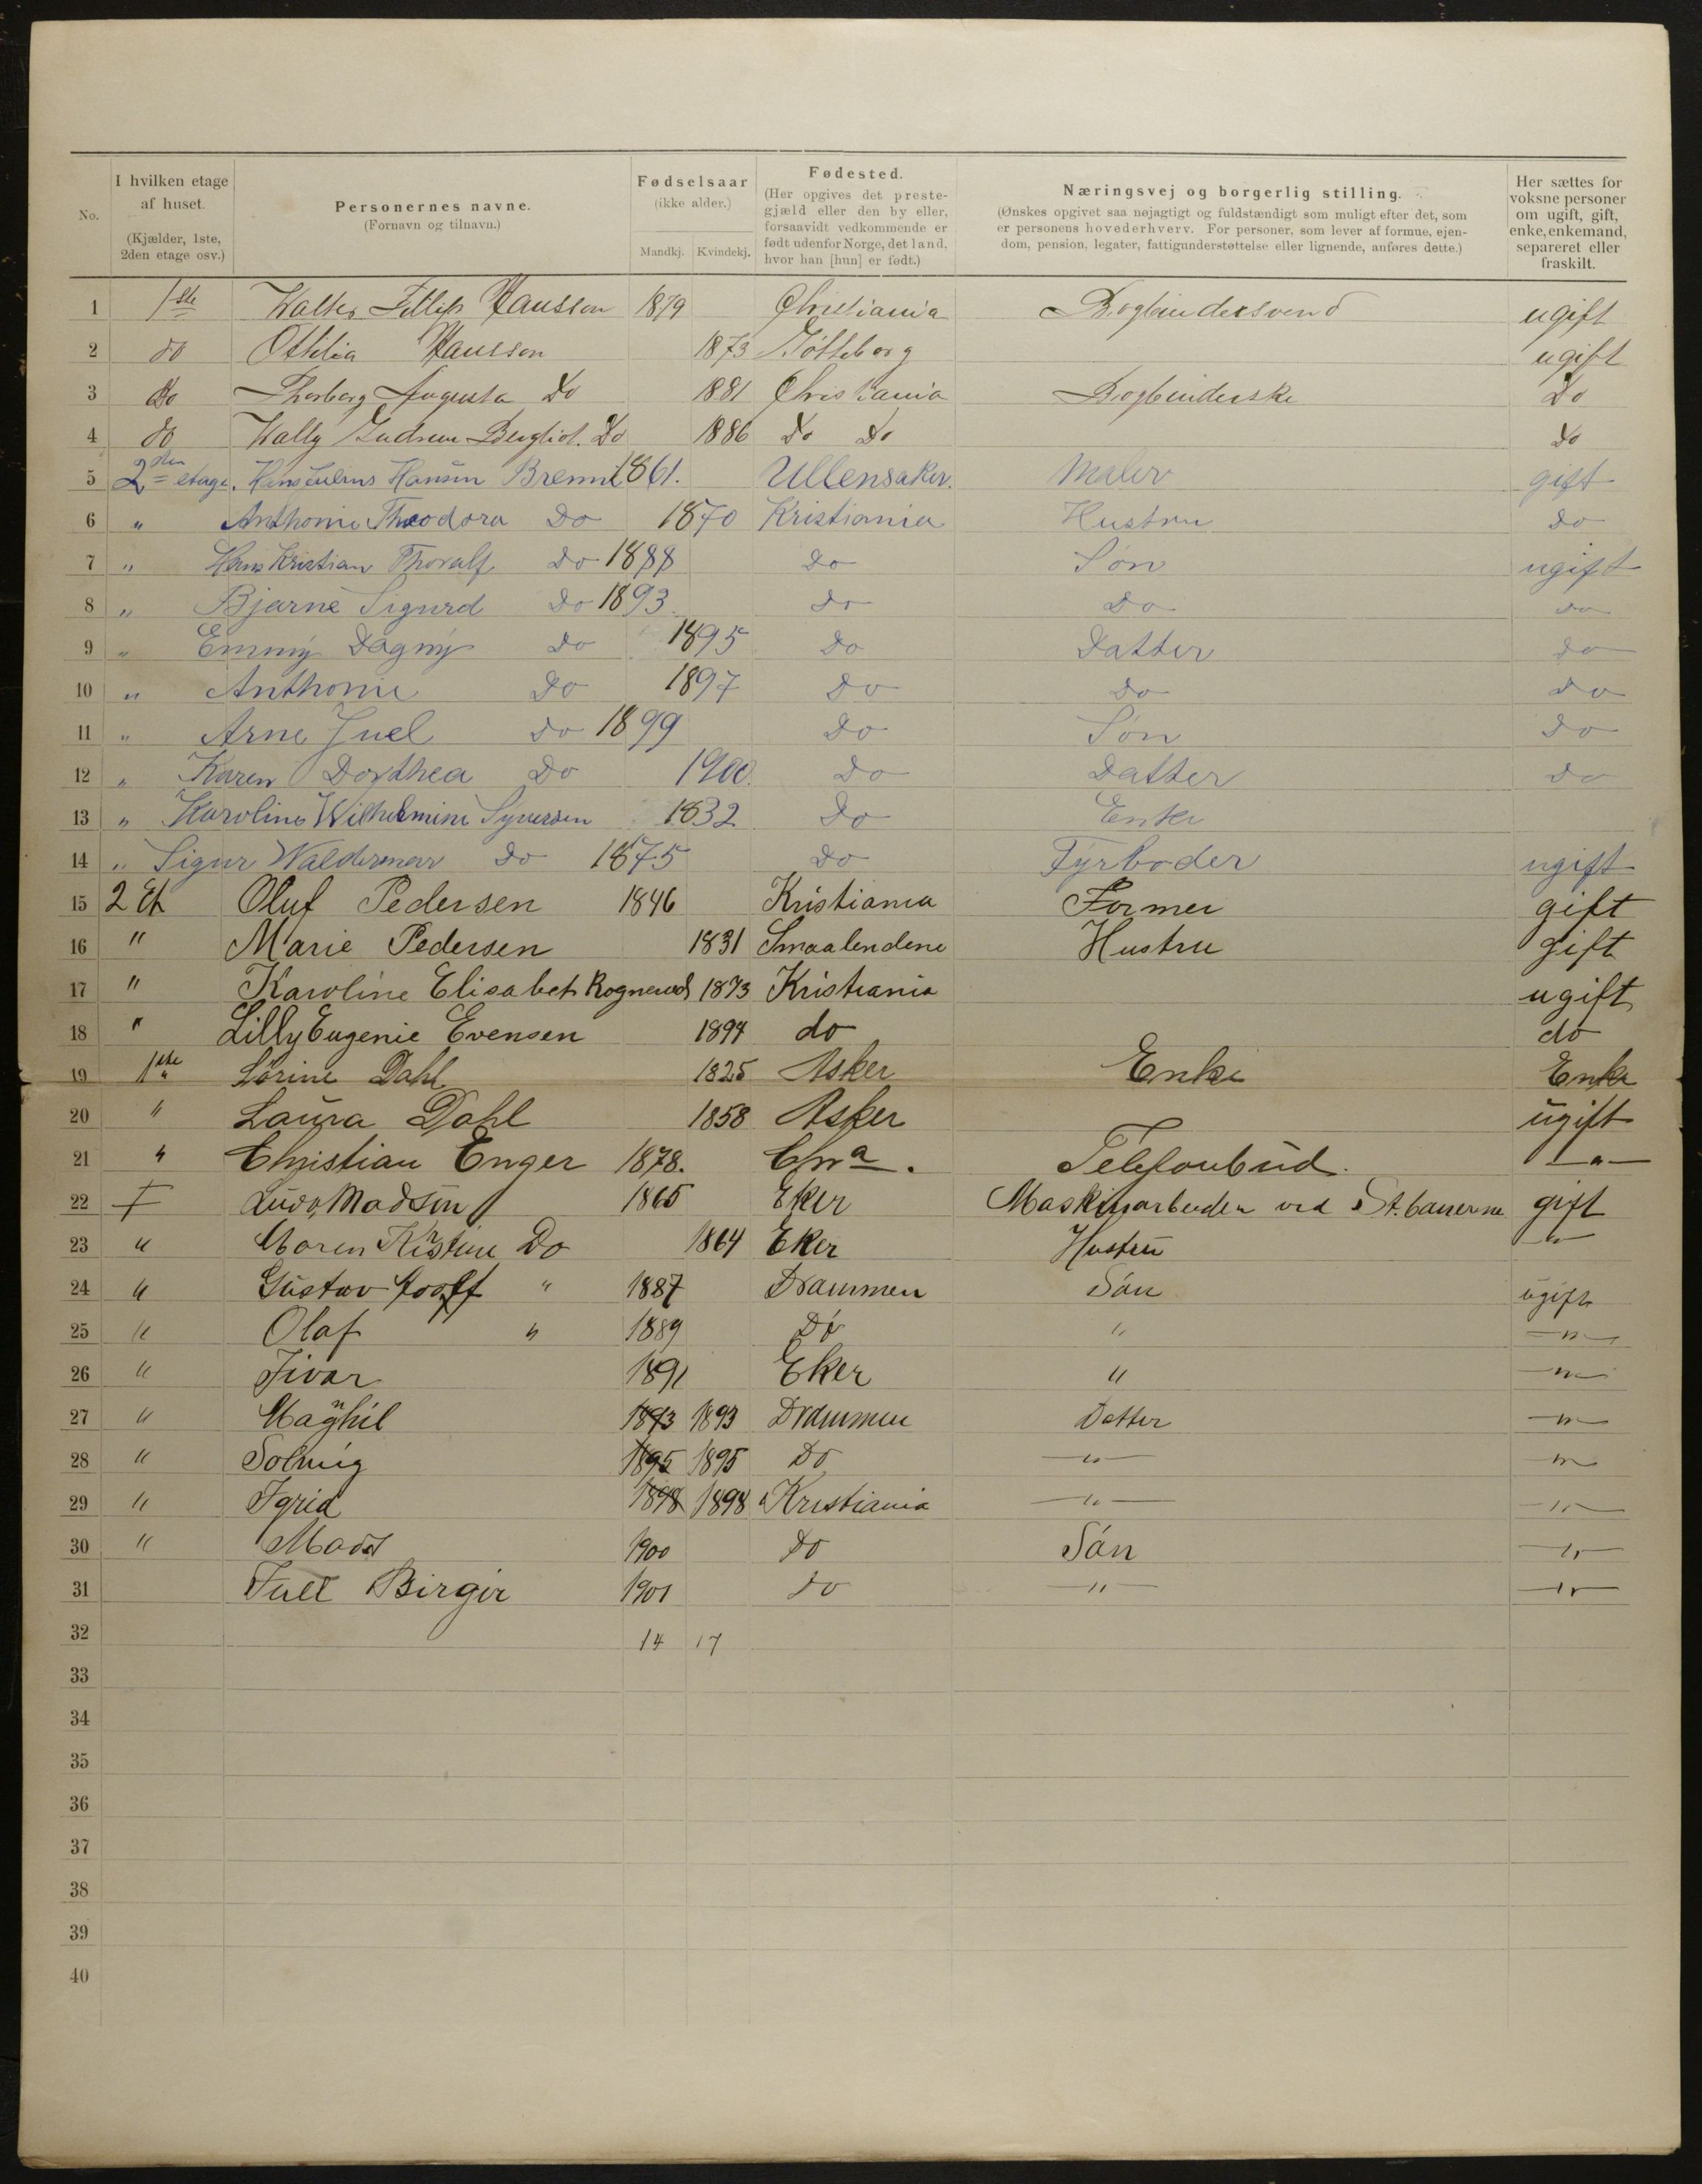 No.
I hvilken etage af huset.
(Kjælder, 1ste, 2den etage osv.)
Personernes navne.
(Fornavn og tilnavn.)
Fødselsaar
(ikke alder.)
Mandkj. Kvindekj.
Fødested.
(Her opgives det prestegjæld eller den by eller, forsaavidt vedkommende er født udenfor Norge, det land, hvor han [hun] er født.)
Næringsvej og borgerlig stilling.
(Ønskes opgivet saa nøjagtigt og fuldstændigt som muligt efter det, som er personens hovederhverv. For personer, som lever af formue, ejendom, pension, legater, fattigunderstøttelse eller lignende, anføres dette.)
Her sættes for voksne personer om ugift, gift, enke, enkemand, separeret eller fraskilt.
1 1ste Walter Fillip Hansson 1879 Christiania Bogbindersvend ugift
2 do Othilia Hansson 1873 Gøtteborg ugift
3 do Thorborg Augusta Do 1881 Christiania Bogbinderske Do
4 do Wally Gudrun Bergliot. Do 1886 Do Do Do
5 2den etage. Hans Julius Hansen Brenni 1861. Ullensaker. Maler gift
6 " Anthonie Theodora Do 1870 Kristiania Hustru Do
7 " Hans Kristian Thoralf Do 1888 Do Søn ugift
8 " Bjarne Sigurd Do 1893. Do Do Do
9 " Emmy Dagny Do 1895 Do Datter Do
10 " Anthonie Do 1897 Do Do Do
11 " Arne Juel Do 1899 Do Søn Do
12 " Karen Dorthea Do 1900. Do Datter Do
13 " Karoline Wilhelmine Syversen 1832 Do Enke
14 " Sigur Waldermar Do 1875 Do Fyrbøder ugift
15 2 Et Oluf Pedersen 1846 Kristiania Former gift
16 " Marie Pedersen 1831 Smaalendene Hustru gift
17 " Karoline Elisabet Rognerud 1873 Kristiania ugift
18 " Lilly Eugenie Evensen 1894 do do
19 1ste " Lørine Dahl 1825 Asker Enke Enke
20 " Laura Dahl 1858 Asker ugift
21 " Christian Enger 1878. Chra. Telefonbud. — " —
22 Madsen 1865 Eker Maskinarbeider ved St. banerne gift
23 " Maren Kistine Do 1864 Eker Hustru — " —
24 " Gustav " 1887 Drammen Søn ugift
25 " Olaf " 1889 Do " — " —
26 " Iivar 1891 Eker " — " —
27 " Maghil 1893 1893 Drammen Datter — " —
28 " Solveig 1895 1895 Do — " — — " —
29 " Igrid 1898 1898 Kristiania — " — — " —
30 " Mads 1900 Do Søn — " —
31 Juel Birger 1901 Do — " — — " —
32 14 17
33
34
35
36
37
38
39
40